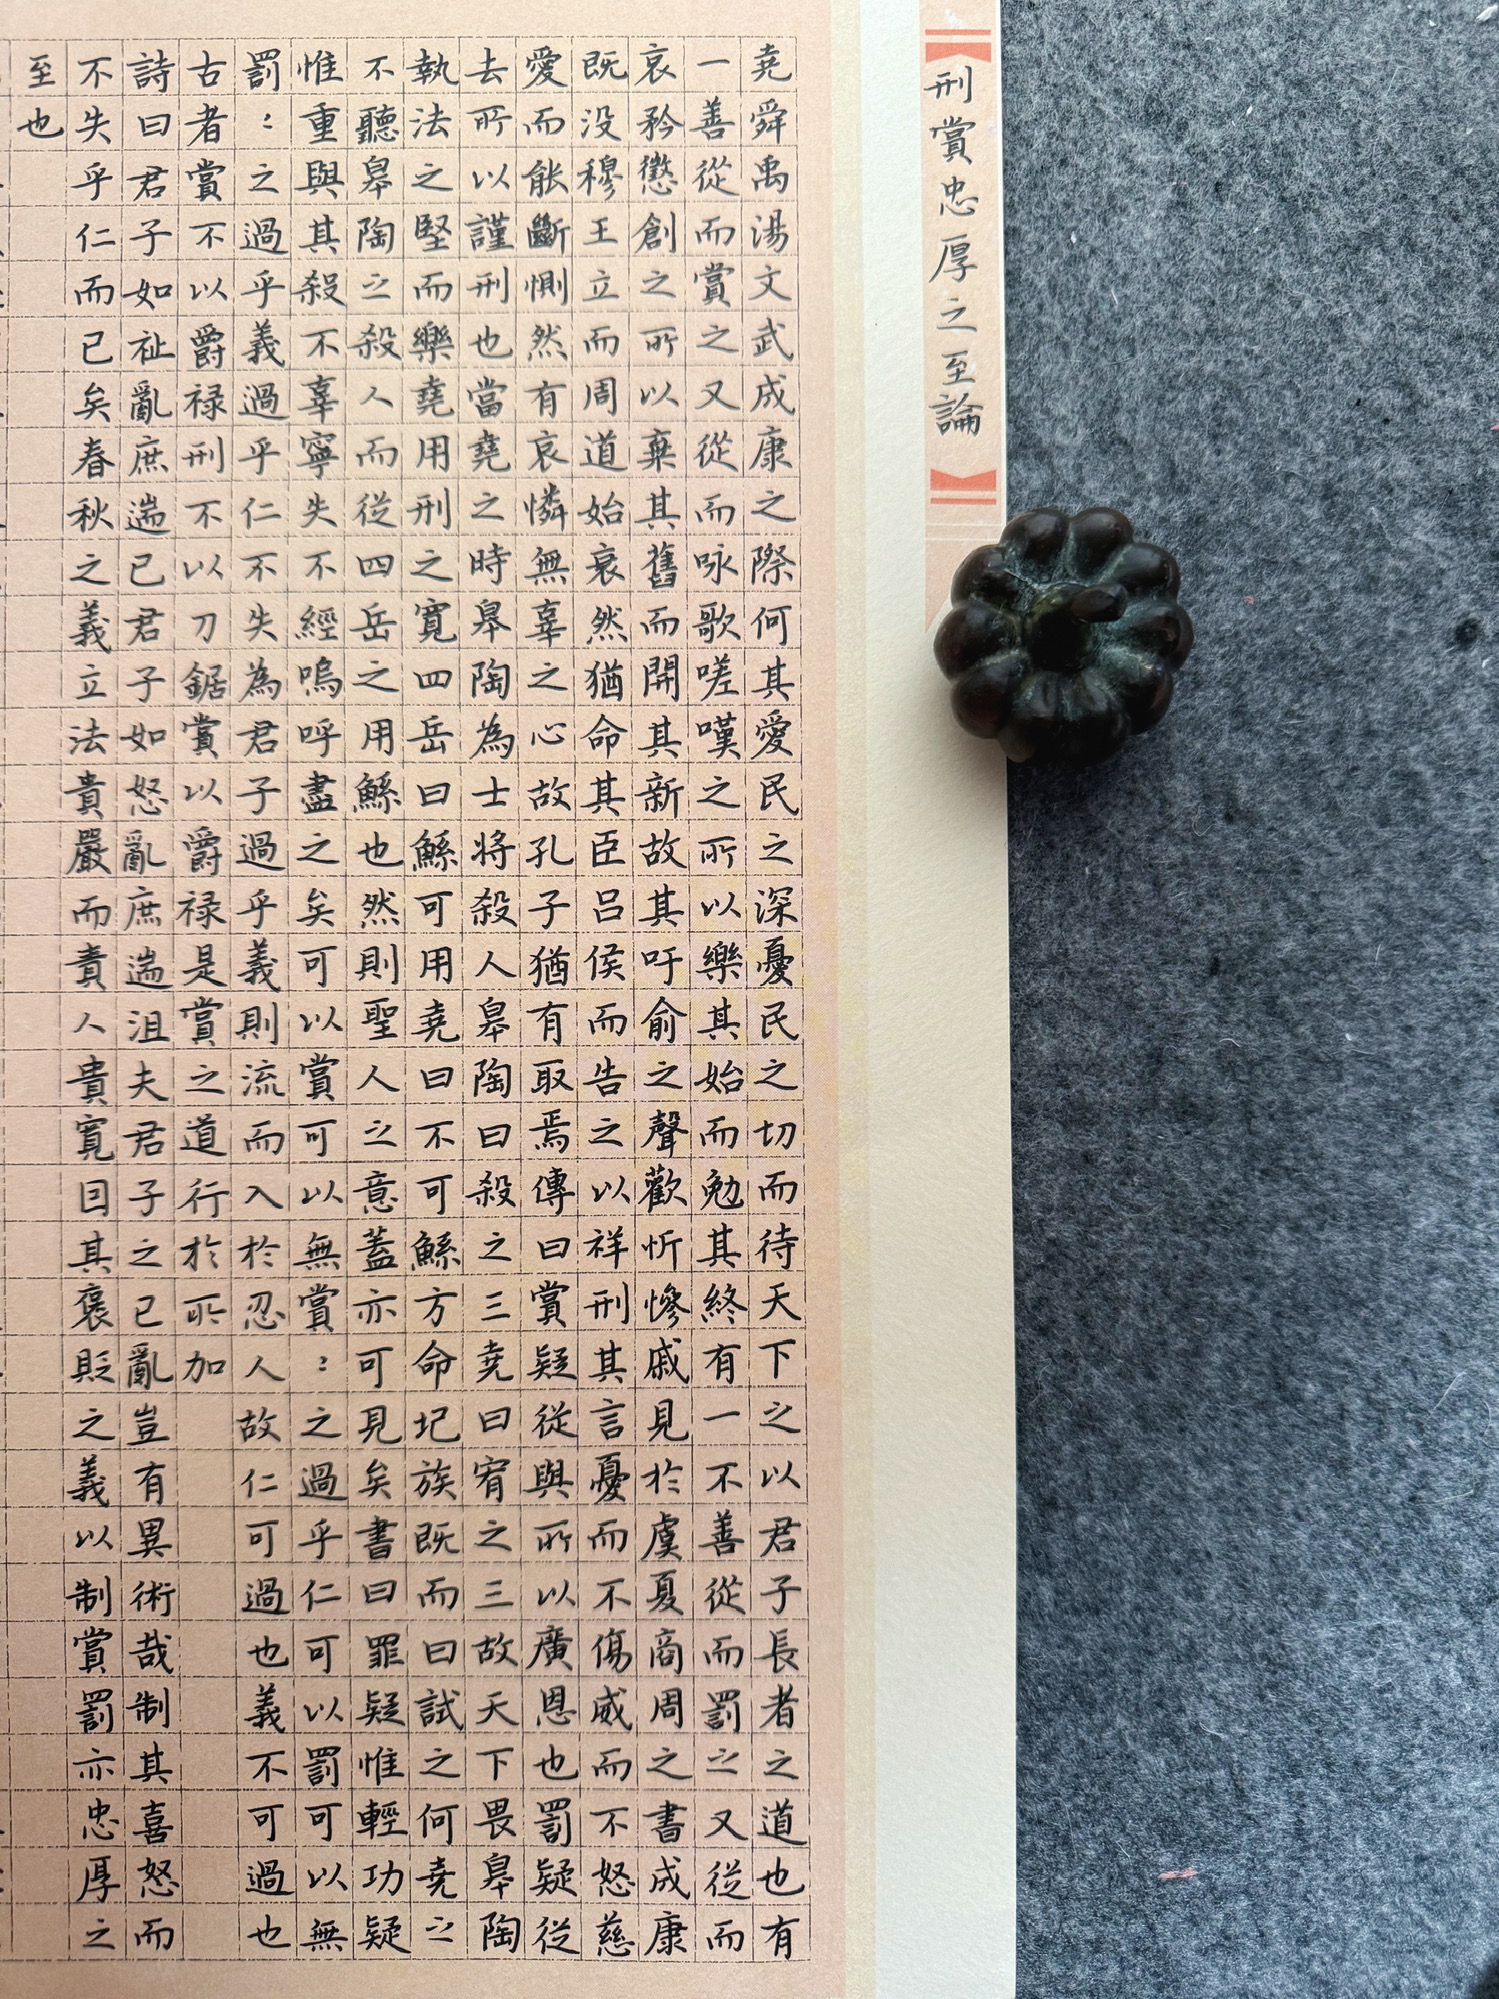 刑賞忠厚之至論
堯舜禹湯文武成康之際何其愛民之深憂民之切而待天下之以君子長者之道也有
一善從而賞之又從而咏歌嗟嘆之所以樂其始而勉其終有一不善從而罰之又從而
哀矜懲創之所以棄其舊而開其新故其吁俞之聲歡忻慘戚見於虞夏商周之書成康
既没穆王立而周道始衰然猶命其臣吕侯而告之以祥刑其言憂而不傷威而不怒慈
愛而能斷惻然有哀憐無辜之心故孔子猶有取焉傳曰賞疑從與所以廣恩也罰疑從
去所以謹刑也當堯之時皋陶為士將殺人皋陶曰殺之三堯曰宥之三故天下畏皋陶
執法之堅而樂堯用刑之寬四岳曰鯀可用堯曰不可鯀方命圮族既而曰試之何堯之
不聽皋陶之殺人而從四岳之用鯀也然則聖人之意蓋亦可見矣書曰罪疑惟輕功疑
惟重與其殺不辜寧失不經嗚呼盡之矣可以賞可以無賞：之過乎仁可以罰可以無
罰：之過乎義過乎仁不失為君子過乎義則流而入於忍人故仁可過也義不可過也
古者賞不以爵禄刑不以刀鋸賞以爵禄是賞之道行於所加
詩曰君子如祉亂庶遄已君子如怒亂庶遄沮夫君子之已亂豈有異術哉制其喜怒而
不失乎仁而已矣春秋之義立法貴嚴而責人貴寬因其褒貶之義以制賞罰亦忠厚之
至也